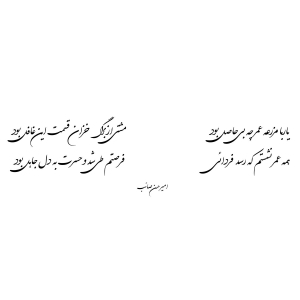 یارب مزرعه عمر چه بی حاصل بود مشتی از برگ خزان قسمت این غافل بود
همه عمر نشستم که رسد فردائی فرصتم طی شد و حسرت به دل جاهل بود
امیرحسن صائب